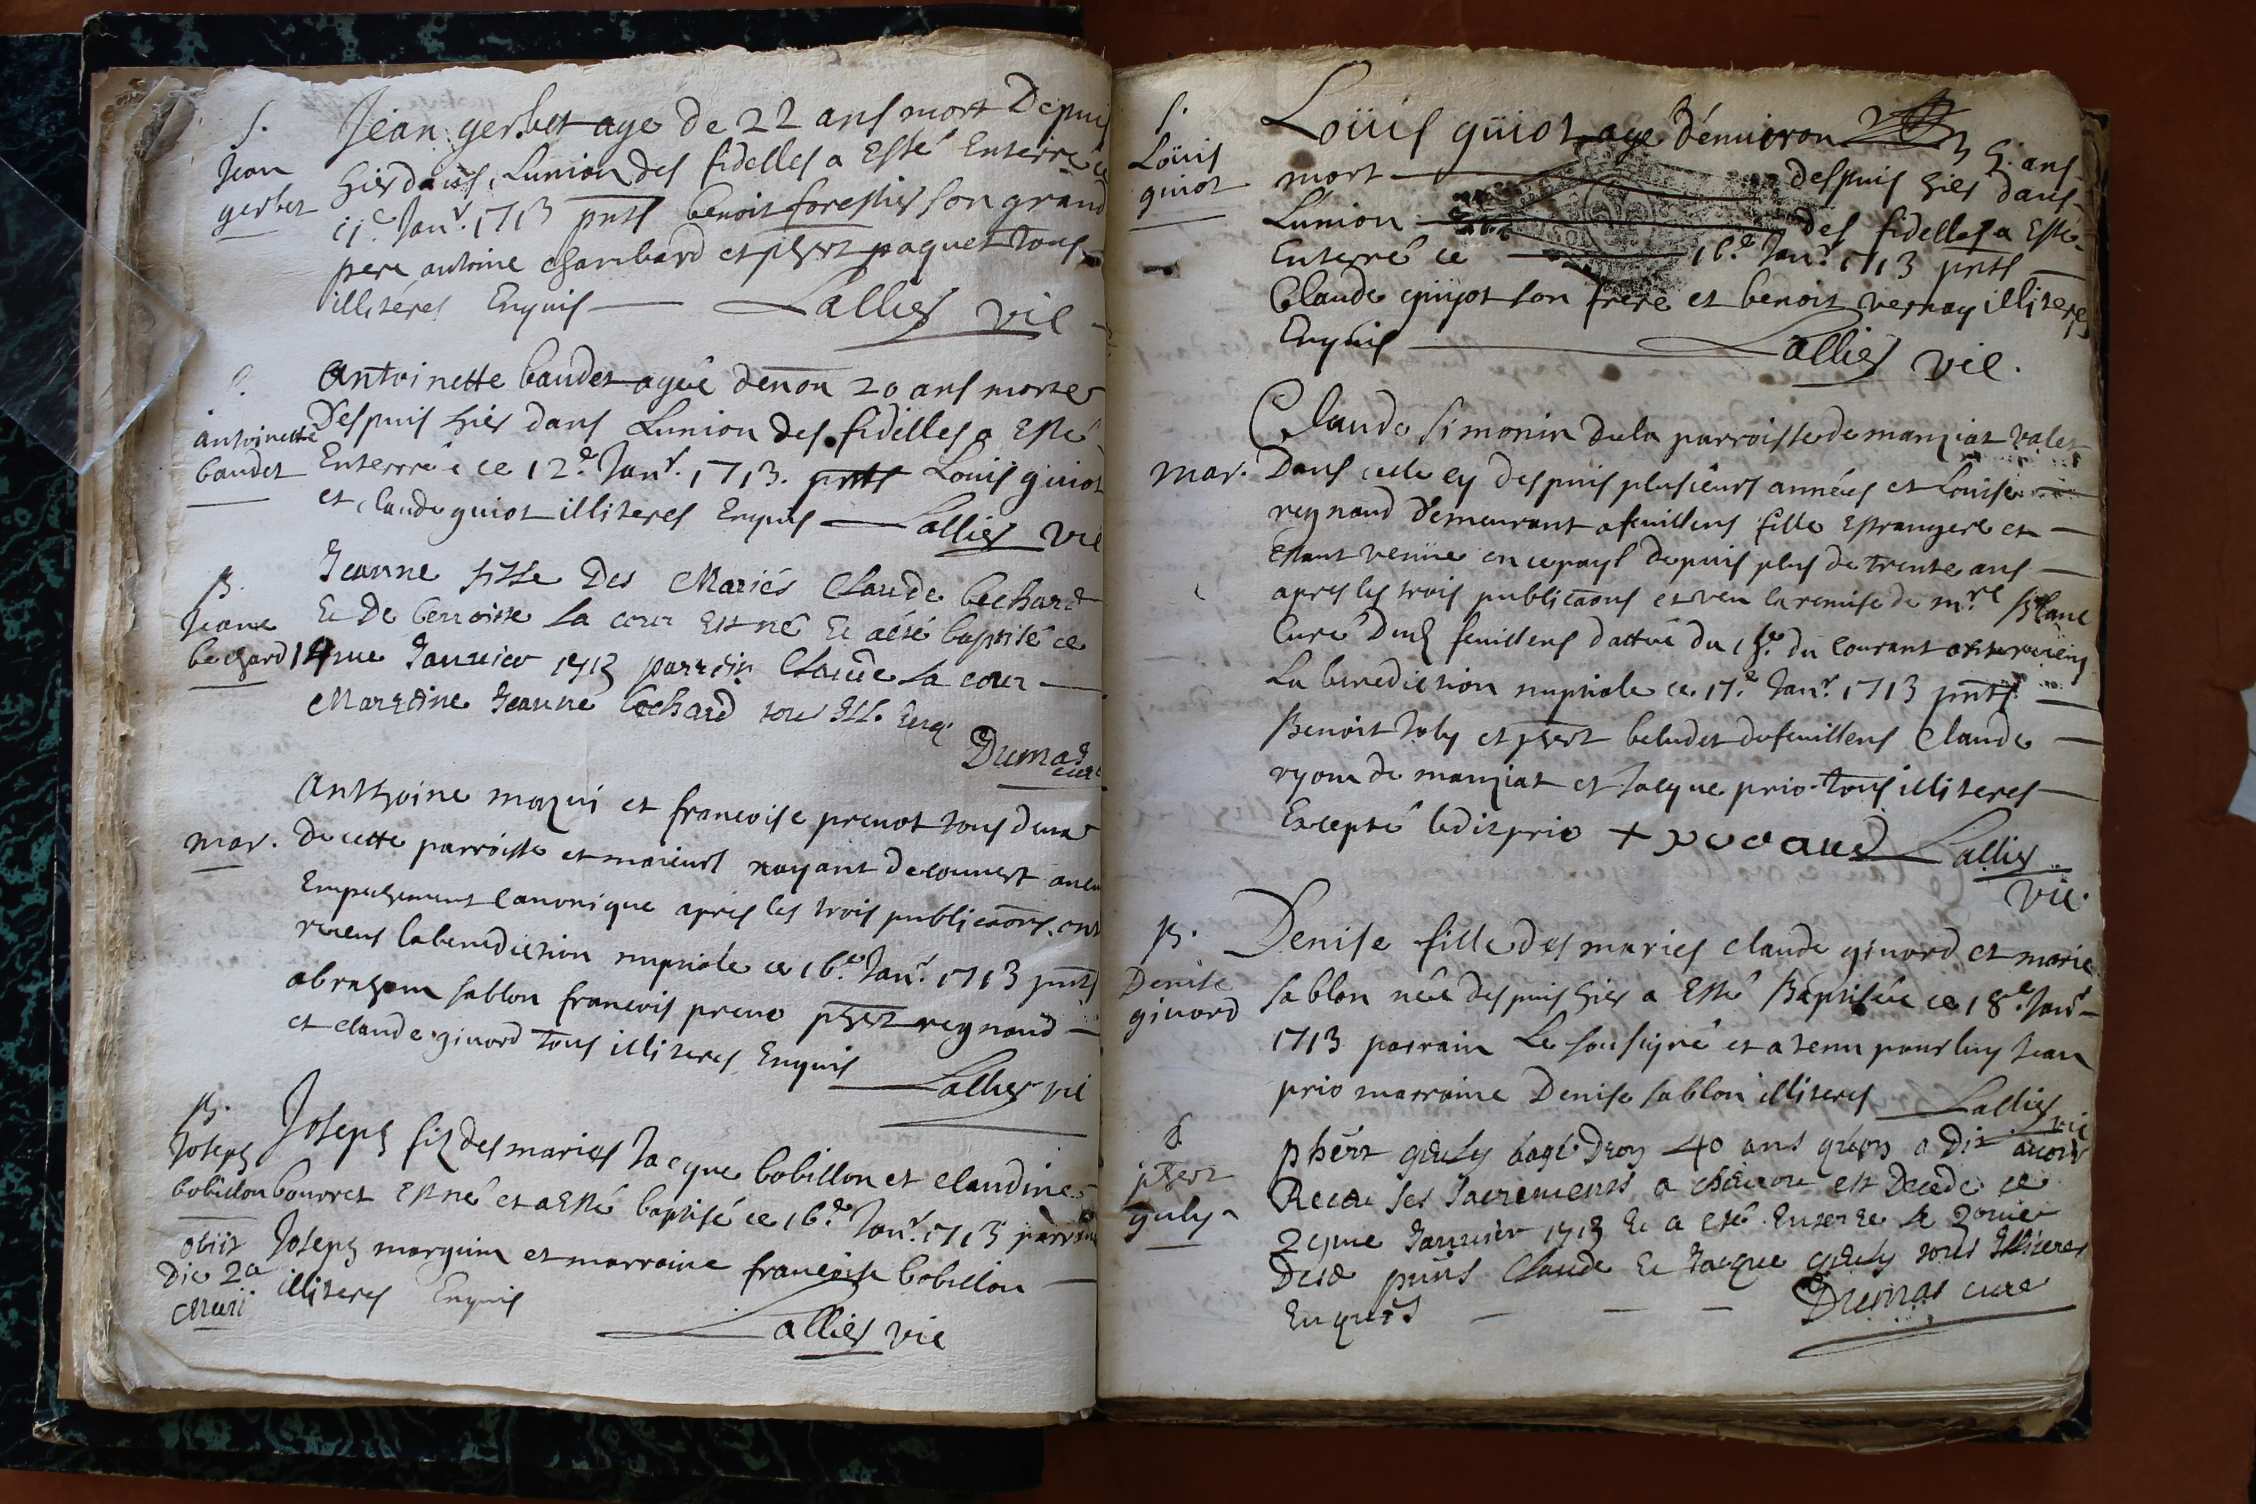 S.
Jean
gerbet
Jean gerbet age de 22 ans mort Depuis
hier dans Lunion des fidelles a Esté Enterré ce
11.e Janr. 1713 pnts benoit forestier son grand
pere antoine chambard et phbrt paquet tous
illiteres Enquis Lallier vic
antoinette
baudet
Antoinette baudet ageé denon 20 ans morte
Despuis hier dans Lunion des fidelles a Esté
Enterreé ce 12.e Janr. 1713. pnts Louis guiot
et claude guiot illiteres Enquis Lallier vic
B.
Jeane
bechard
Jeanne fille Des Mariés Claude bechard
Et De benoiste La cour Est né Et a été baptisé ce
14me Januier 1713 parrain Claude La cour
Marraine Jeanne bechard tous Ill. Enq.
Dumas
curé
mar.
Anthoine mazui et francoise prenot tous deux
de cette parroisse et maieurs nayant decouuert aucun
Empeschement canonique apres les trois publicaons ont
receus la benediction nuptiale ce 16.e Janr. 1713 pnts
abraham sablon francois preno phbrt reynaud
et claude giuord Tous illiteres Enquis
Lallier vic
B.
Joseph
bobillon
obiit
Die 2a
Joseph fiz des maries Jacque bobillon et claudine
bourret Est né et a Esté baptisé ce 16.e Janr. 1713 parrain
Joseph marguin et marraine francoise bobillon
illiteres Enquis
Lallier vic
S.
Loüis
guiot
Loüis guiot age d'enuiron 5. ans
mort despuis hier dans
Lunion des fidelles a Esté
Enterré ce 16.e Janr. 1713 pnts
Claude guyot son frere et benoit vernay illiteres
Enquis Lallier vic.
mar.
Claude Simonin de la parroisse de manziat valet
Dans celle cy despuis plusieurs années et Louise
reynaud demeurant a feuillens fille Estrangere et
Estant venüe en ce pays depuis plus de trente ans
apres les trois publicaons et veu la remise de mre Blanc
Curé Dudt feuillens dattée du 15.e du courant ont receu
La benediction nuptiale ce 17.e Janr. 1713 pnts
Benoit Joly et phbrt beludet de feuillens Claude
ryon de manziat et Jacque prio Tous illiteres
Excepté ledit prio + Lallier
vic.
B.
Denise
giuord
Denise fille des maries claude giuord et marie
sablon née despuis hier a Esté Baptisée ce 18.e Janr.
1713 parrain Le sousigné et a tenu pour luy Jean
prio marraine Denise sablon illiteres Lallier
vic
S.
phbert
guly
phbrt guly agé Dron 40 ans a Dit auoir
Receu ses sacrements a est Decedé ce
Januier 1713 Et a esté Enterré le
pnts Claude Et Jacque guly tous Illiteres
Enquis Dumas curé